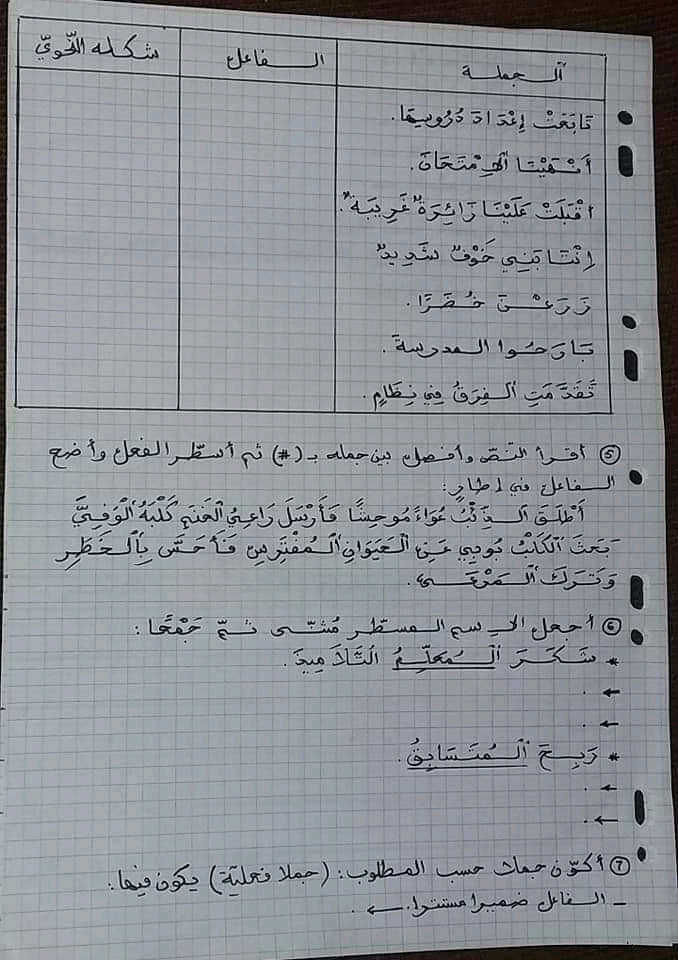 الجملة	الفاعل	شكله النّحويّ
تَابَعَتْ إِعْدَادَ دُرُوسِهَا.
أَنْهَيْنَا الاِمْتِحَانَ.
أَقْبَلَتْ عَلَيْنَا زَائِرَةٌ غَرِيبَةٌ.
اِنْتَابَنِي خَوْفٌ شَدِيدٌ
زَرَعْنَ خُضَرًا.
بَارَحُوا المدرسةَ.
تَقَدَّمَتِ الفِرَقُ فِي نِظَامٍ.
⑤ أقرأ النّصّ وأفصل بين جمله بـ (#) ثم أسطّر الفعل وأضع
الفاعل في إطارٍ:
أَطْلَقَ الذِّئْبُ عُوَاءً مُوحِشًا فَأَرْسَلَ رَاعِي الغَنَمِ كَلْبَهُ الوَفِيَّ
بَحَثَ الكَلْبُ بُوبِي عَنِ الحَيَوَانِ المُفْتَرِسِ فَأَحَسَّ بِالخَطَرِ
وَتَرَكَ المَرْعَى.
⑥ أجعل الاسم المسطّر مُثنّى ثمّ جَمْعًا:
* شَكَرَ المُعَلِّمُ التَّلَامِيذَ.
← .
← .
* رَبِحَ المُتَسَابِقُ.
← .
← .
⑦ أكوّن جملا حسب المطلوب: (جملا فعليّة) يكون فيها:
- الفاعل ضميرا مستترا. ← .